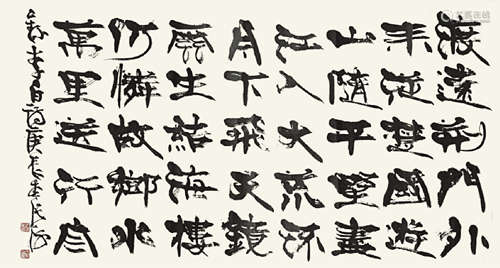 渡遠荊門外
来從楚國遊
山隨平野盡
江入大荒流
月下飛天鏡
雲生結海樓
仍憐故鄉水
萬里送行舟
李白詩庚辰